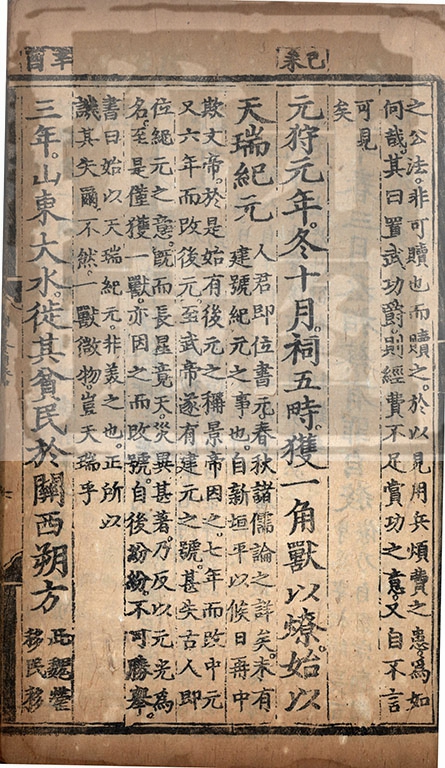 己未
之公法。非可贖也而贖之。於以見用兵煩費之患。爲如
何哉。其曰置武功爵。則經費不足賞功之意。又自不言
可見
矣
元狩元年。冬十月。祠五畤。獲一角獸以燎。始以
天瑞紀元
人君即位書元春秋諸儒論之詳矣。未有
建號紀元之事也。自新垣平以候日再中
欺文帝。於是始有後元之稱。景帝因之。七年而改中元
又六年而改後元。至武帝遂有建元之號。甚失古人即
位紀元之意。旣而長星竟天。災異甚著。乃反以元光爲
名。至是僅獲一獸。亦因之而改號。自後紛紛。不可勝舉。
書曰始以天瑞紀元。非美之也。正所以
譏其失爾。不然。一獸微物豈天瑞乎
辛酉
三年。山東大水。徙其貧民於關西朔方
正魏鑿
移民移